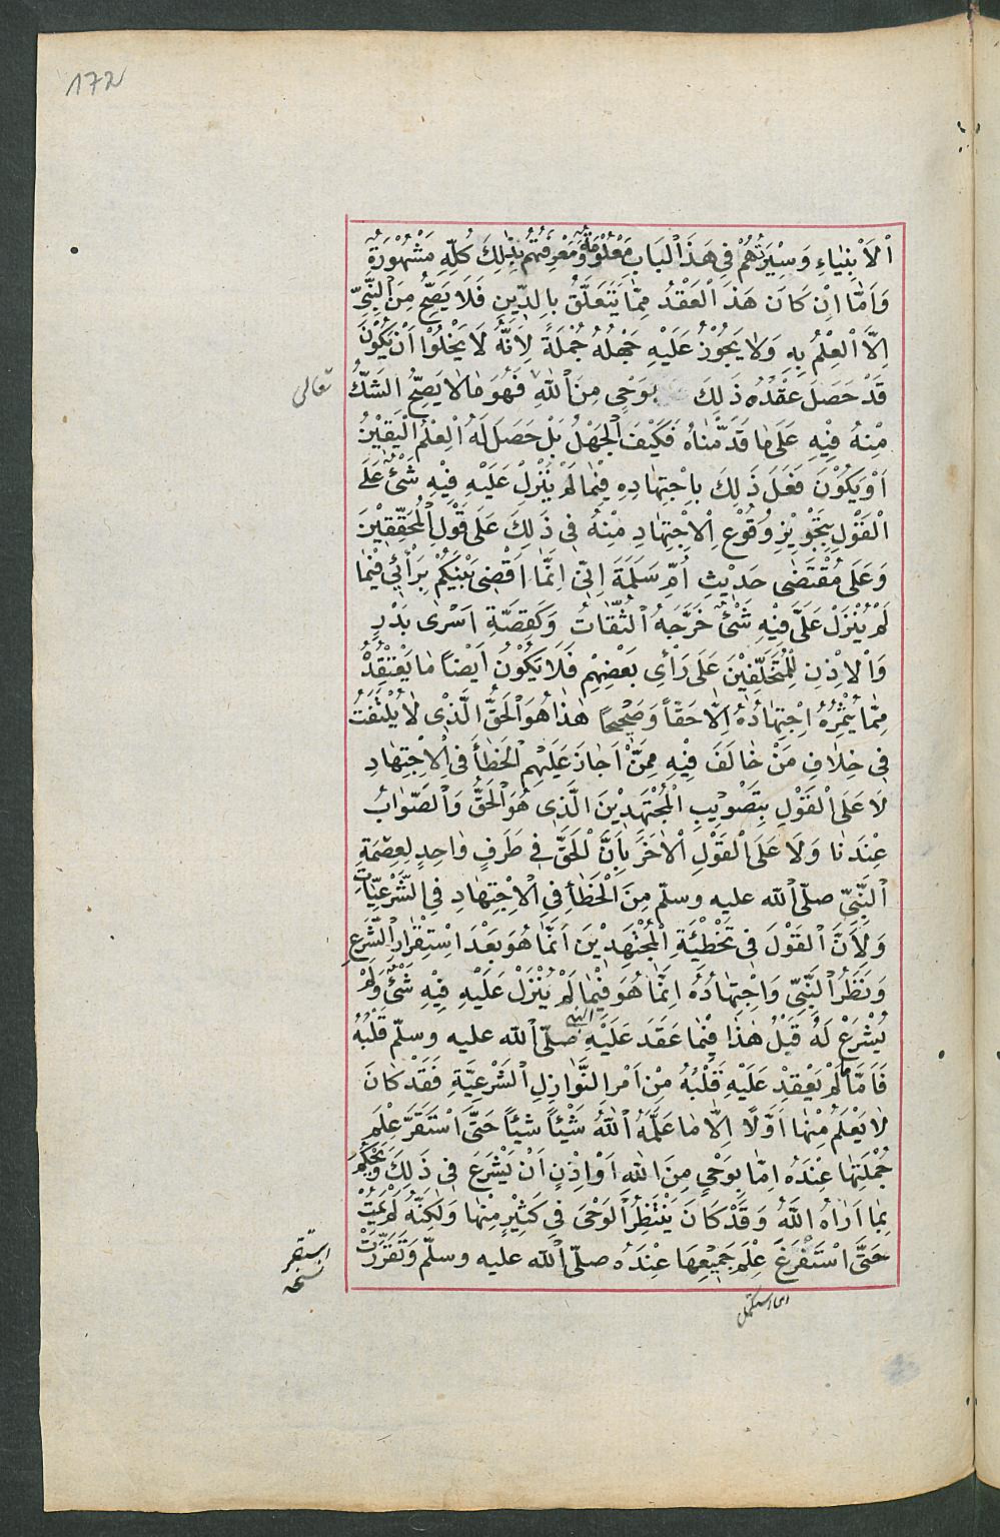 172
اْلاَنْبِيَاءِ وَسِيْرَتُهُمْ فِى هَذَا الْبَابِ مَعْلُوْمَةٌ وَمَعْرِفَتُهُمْ بِذٰلِكَ كُلِّهِ مَشْهُوْرَةٌ
وَاَمَّا اِنْ كَانَ هَذَا الْعَقْدُ مِمَّا يَتَعَلَّقُ بِالدِّيْنِ فَلَا يَصِحُّ مِنَ النَّبِىِّ
اِلَّا الْعِلْمُ بِهِ وَلَا يَجُوْزُ عَلَيْهِ جَهْلُهُ جُمْلَةً لِاَنَّهُ لَا يَخْلُوْا اَنْ يَكُوْنَ
قَدْ حَصَلَ عِنْدَهُ ذَلِكَ بِوَحْىٍ مِنَ اللّٰهِ فَهُوَ مَا لَا يَصِحُّ الشَّكُّ
تعالى
مِنْهُ فِيْهِ عَلَى مَا قَدَّمْنَاهُ فَكَيْفَ الْجَهْلُ بَلْ حَصَلَ لَهُ الْعِلْمُ الْيَقِيْنُ
اَوْ يَكُوْنَ فَعَلَ ذَلِكَ بِاجْتِهَادِهِ فِيْمَا لَمْ يُنْزَلْ عَلَيْهِ فِيْهِ شَىْءٌ عَلَى
الْقَوْلِ بِتَجْوِيْزِ وُقُوْعِ اْلاِجْتِهَادِ مِنْهُ فِى ذَلِكَ عَلَى قَوْلِ الْمُحَقِّقِيْنَ
وَعَلَى مُقْتَضَى حَدِيْثِ اُمِّ سَلَمَةَ اِنِّى اِنَّمَا اَقْضِى بَيْنَكُمْ بِرَأْيِي فِيْمَا
لَمْ يُنْزَلْ عَلَىَّ فِيْهِ شَىْءٌ خَرَّجَهُ الثِّقَاتُ وَكَقِصَّةِ اَسْرٰى بَدْرٍ
وَاْلاِذْنِ لِلْمُتَخَلِّفِيْنَ عَلَى رَأْىِ بَعْضِهِمْ فَلَا يَكُوْنُ اَيْضًا مَا يَعْتَقِدُهُ
مِمَّا يُثْمِرُهُ اِجْتِهَادُهُ اِلَّا حَقًّا وَصَحِيْحًا هٰذَا هُوَ الْحَقُّ الَّذِى لَا يُلْتَفَتُ
فِى خِلَافِ مَنْ خَالَفَ فِيْهِ مِمَّنْ اَجَازَ عَلَيْهِمُ الْخَطَأَ فِى اْلاِجْتِهَادِ
لَا عَلَى الْقَوْلِ بِتَصْوِيْبِ الْمُجْتَهِدِيْنَ الَّذِى هُوَ الْحَقُّ وَالصَّوَابُ
عِنْدَنَا وَلَا عَلَى الْقَوْلِ اْلاٰخَرِ بِاَنَّ الْحَقَّ فِى طَرَفٍ وَاحِدٍ لِعِصْمَةِ
النَّبِىِّ صلّى الله عليه وسلّم مِنَ الْخَطَأِ فِى اْلاِجْتِهَادِ فِى الشَّرْعِيَّاتِ
وَلِاَنَّ الْقَوْلَ فِى تَخْطِئَةِ الْمُجْتَهِدِيْنَ اَنَّمَا هُوَ بَعْدَ اسْتِقْرَارِ الشَّرْعِ
وَنَظَرُ النَّبِىِّ وَاجْتِهَادُهُ اِنَّمَا هُوَ فِيْمَا لَمْ يُنْزَلْ عَلَيْهِ فِيْهِ شَىْءٌ وَلَمْ
يُشْرَعْ لَهُ قَبْلُ هٰذَا فِيْمَا عَقَدَ عَلَيْهِ النبى صلّى الله عليه وسلّم قَلْبُهُ
فَاَمَّا مَا لَمْ يَعْقِدْ عَلَيْهِ قَلْبُهُ مِنْ اَمْرِ النَّوَازِلِ الشَّرْعِيَّةِ فَقَدْ كَانَ
لَا يَعْلَمُ مِنْهَا اَوَّلًا اِلَّا مَا عَلَّمَهُ اللّٰهُ شَيْئًا شَيْئًا حَتَّى اسْتَقَرَّ عِلْمُ
جُمْلَتِهَا عِنْدَهُ اِمَّا بِوَحْىٍ مِنَ اللّٰهِ اَوْ اِذْنٍ اَنْ يَشْرَعَ فِى ذَلِكَ وَيَحْكُمَ
بِمَا اَرَاهُ اللّٰهُ وَقَدْ كَانَ يَنْتَظِرُ الْوَحْىَ فِى كَثِيْرٍ مِنْهَا وَلٰكِنَّهُ لَمْ يَمُتْ
حَتَّى اسْتَفْرَغَ عِلْمَ جَمِيْعِهَا عِنْدَهُ صلّى الله عليه وسلّم وَتَقَرَّرَتْ
استقر
نسخه
اى استكمل